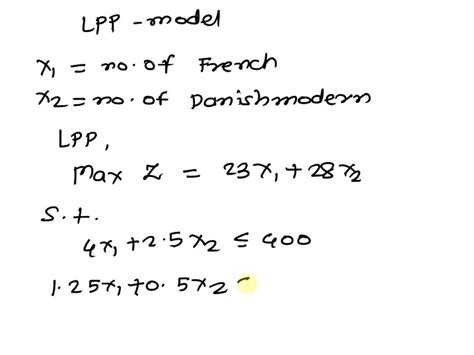 LPP - model
x₁ = no. of French
x₂ = no. of Danishmodern
LPP,
Max Z = 23x₁ + 28x₂
S.t.
4x₁ + 2.5x₂ ≤ 400
1.25x₁ + 0.5x₂